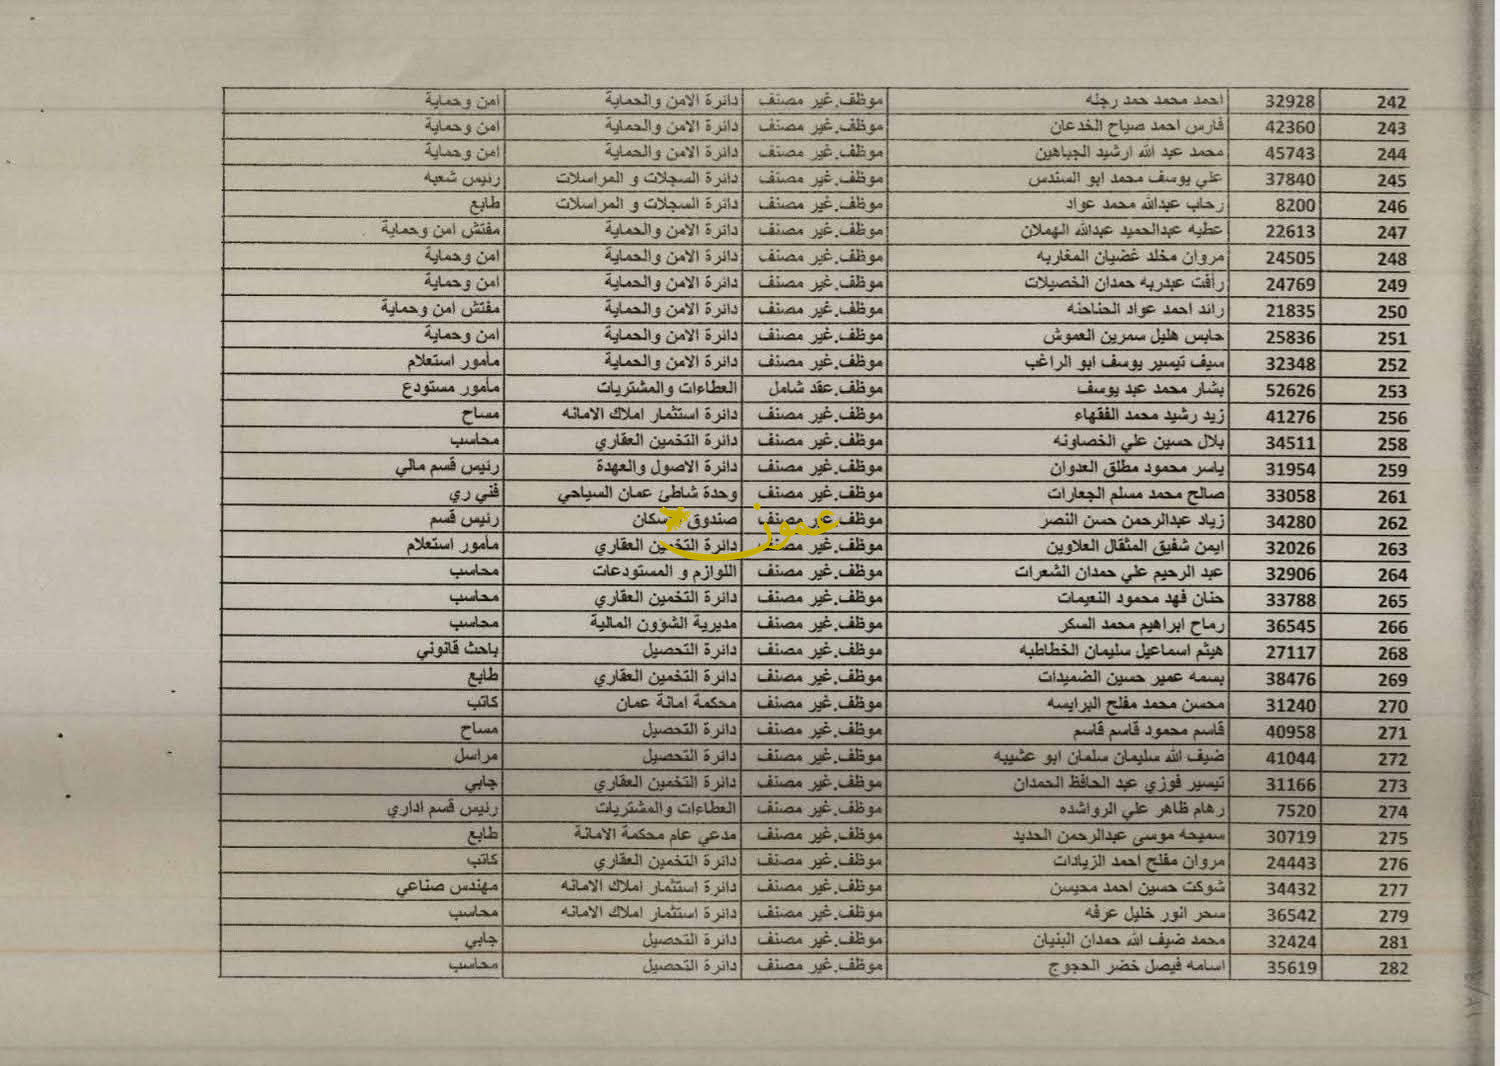 242 32928 احمد محمد حمد رجله موظف.غير مصنف دائرة الامن والحماية امن وحماية
243 42360 فارس احمد صياح الخدعان موظف.غير مصنف دائرة الامن والحماية امن وحماية
244 45743 محمد عبد الله ارشيد الجباهين موظف.غير مصنف دائرة الامن والحماية امن وحماية
245 37840 علي يوسف محمد ابو السندس موظف.غير مصنف دائرة السجلات و المراسلات رئيس شعبه
246 8200 رحاب عبدالله محمد عواد موظف.غير مصنف دائرة السجلات و المراسلات طابع
247 22613 عطيه عبدالحميد عبدالله الهملان موظف.غير مصنف دائرة الامن والحماية مفتش امن وحماية
248 24505 مروان مخلد غضيان المغاربه موظف.غير مصنف دائرة الامن والحماية امن وحماية
249 24769 رأفت عبدربه حمدان الخصيلات موظف.غير مصنف دائرة الامن والحماية امن وحماية
250 21835 رائد احمد عواد الحناحنه موظف.غير مصنف دائرة الامن والحماية مفتش امن وحماية
251 25836 حابس هليل سمرين العموش موظف.غير مصنف دائرة الامن والحماية امن وحماية
252 32348 سيف تيسير يوسف ابو الراغب موظف.غير مصنف دائرة الامن والحماية مأمور استعلام
253 52626 بشار محمد عبد يوسف موظف.عقد شامل العطاءات والمشتريات مأمور مستودع
256 41276 زيد رشيد محمد الفقهاء موظف.غير مصنف دائرة استثمار املاك الامانه مساح
258 34511 بلال حسين علي الخصاونه موظف.غير مصنف دائرة التخمين العقاري محاسب
259 31954 ياسر محمود مطلق العدوان موظف.غير مصنف دائرة الاصول والعهدة رئيس قسم مالي
261 33058 صالح محمد مسلم الجعارات موظف.غير مصنف وحدة شاطئ عمان السياحي فني ري
262 34280 زياد عبدالرحمن حسن النصر موظف.غير مصنف صندوق الاسكان رئيس قسم
عمون
263 32026 ايمن شفيق المثقال العلاوين موظف.غير مصنف دائرة التخمين العقاري مأمور استعلام
264 32906 عبد الرحيم علي حمدان الشعرات موظف.غير مصنف اللوازم و المستودعات محاسب
265 33788 حنان فهد محمود النعيمات موظف.غير مصنف دائرة التخمين العقاري محاسب
266 36545 رماح ابراهيم محمد السكر موظف.غير مصنف مديرية الشؤون المالية محاسب
268 27117 هيثم اسماعيل سليمان الخطاطبه موظف.غير مصنف دائرة التحصيل باحث قانوني
269 38476 بسمه عمير حسين الضميدات موظف.غير مصنف دائرة التخمين العقاري طابع
270 31240 محسن محمد مفلح البرايسه موظف.غير مصنف محكمة امانة عمان كاتب
271 40958 قاسم محمود قاسم قاسم موظف.غير مصنف دائرة التحصيل مساح
272 41044 ضيف الله سليمان سلمان ابو عشيبه موظف.غير مصنف دائرة التحصيل مراسل
273 31166 تيسير فوزي عبد الحافظ الحمدان موظف.غير مصنف دائرة التخمين العقاري جابي
274 7520 رهام ظاهر علي الرواشده موظف.غير مصنف العطاءات والمشتريات رئيس قسم اداري
275 30719 سميحه موسى عبدالرحمن الحديد موظف.غير مصنف مدعي عام محكمة الامانة طابع
276 24443 مروان مفلح احمد الزيادات موظف.غير مصنف دائرة التخمين العقاري كاتب
277 34432 شوكت حسين احمد محيسن موظف.غير مصنف دائرة استثمار املاك الامانه مهندس صناعي
279 36542 سحر انور خليل عرفه موظف.غير مصنف دائرة استثمار املاك الامانه محاسب
281 32424 محمد ضيف الله حمدان البنيان موظف.غير مصنف دائرة التحصيل جابي
282 35619 اسامه فيصل خضر الحجوج موظف.غير مصنف دائرة التحصيل محاسب